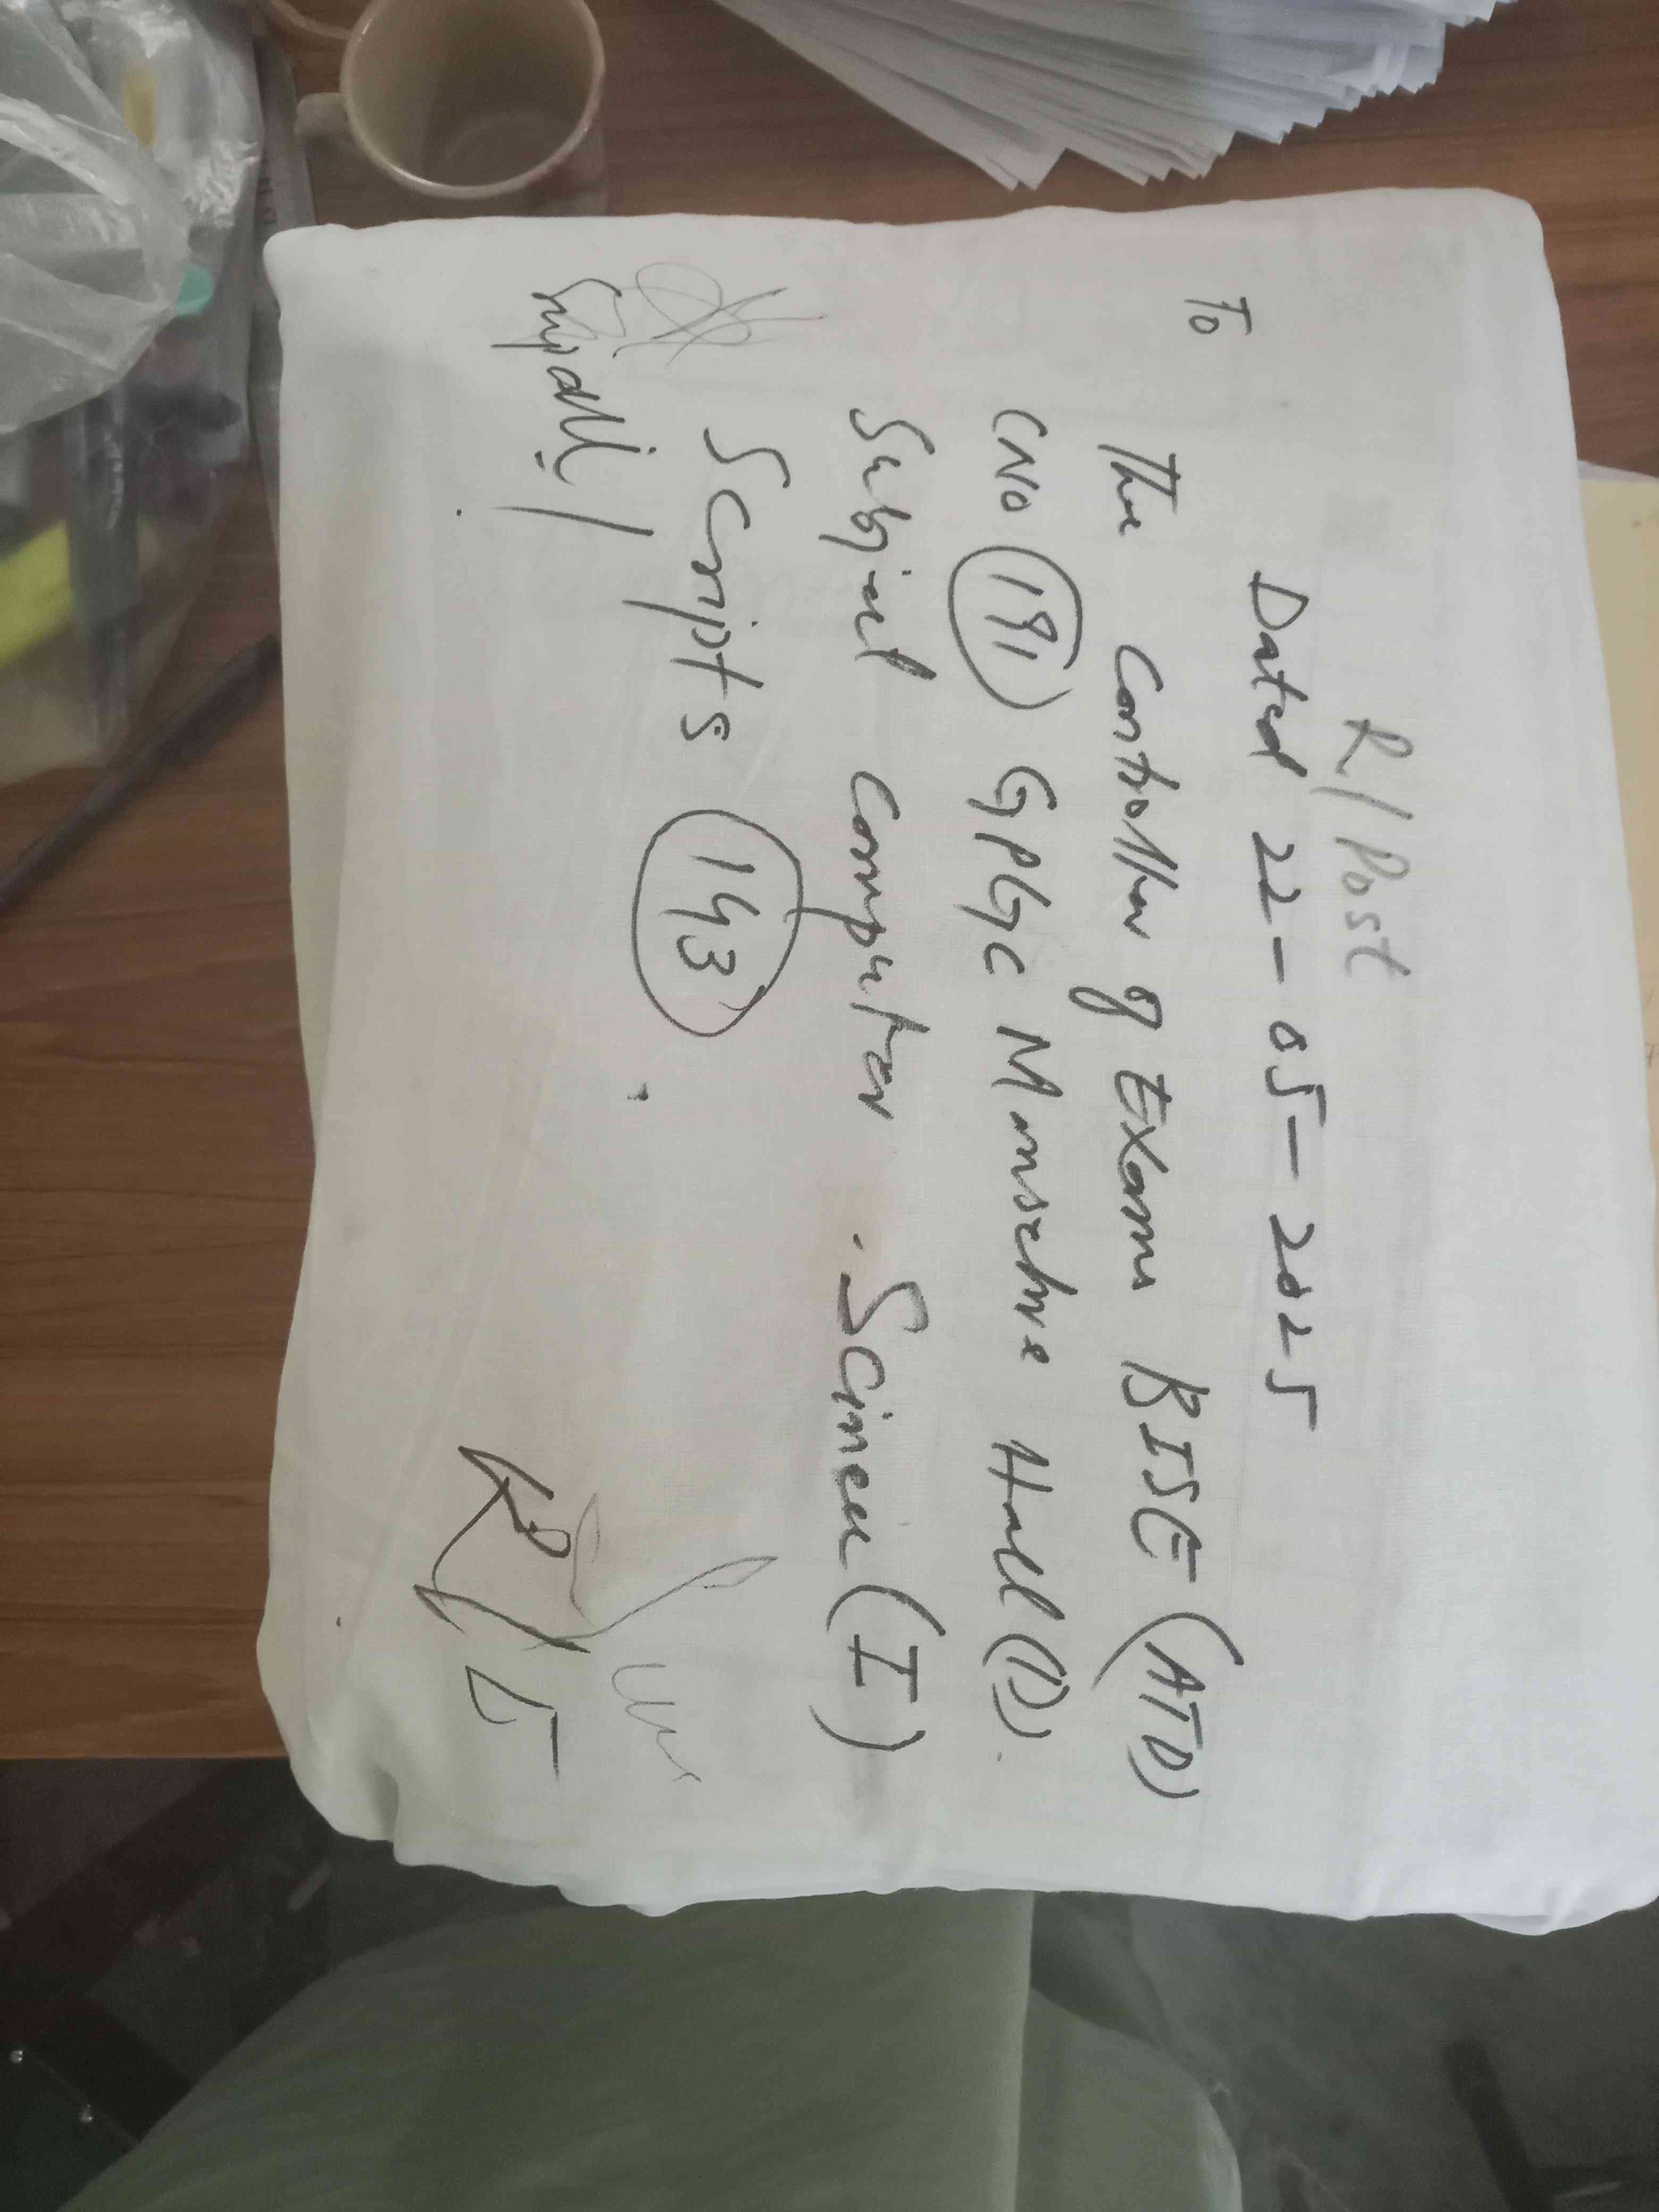 R/Post
Dated 22-05-2025
To
The Controller of Exams BISE (ATD)
CNO 191 GPGC Mansehra Hall (1).
Subject Computer Science (I)
Scripts 143